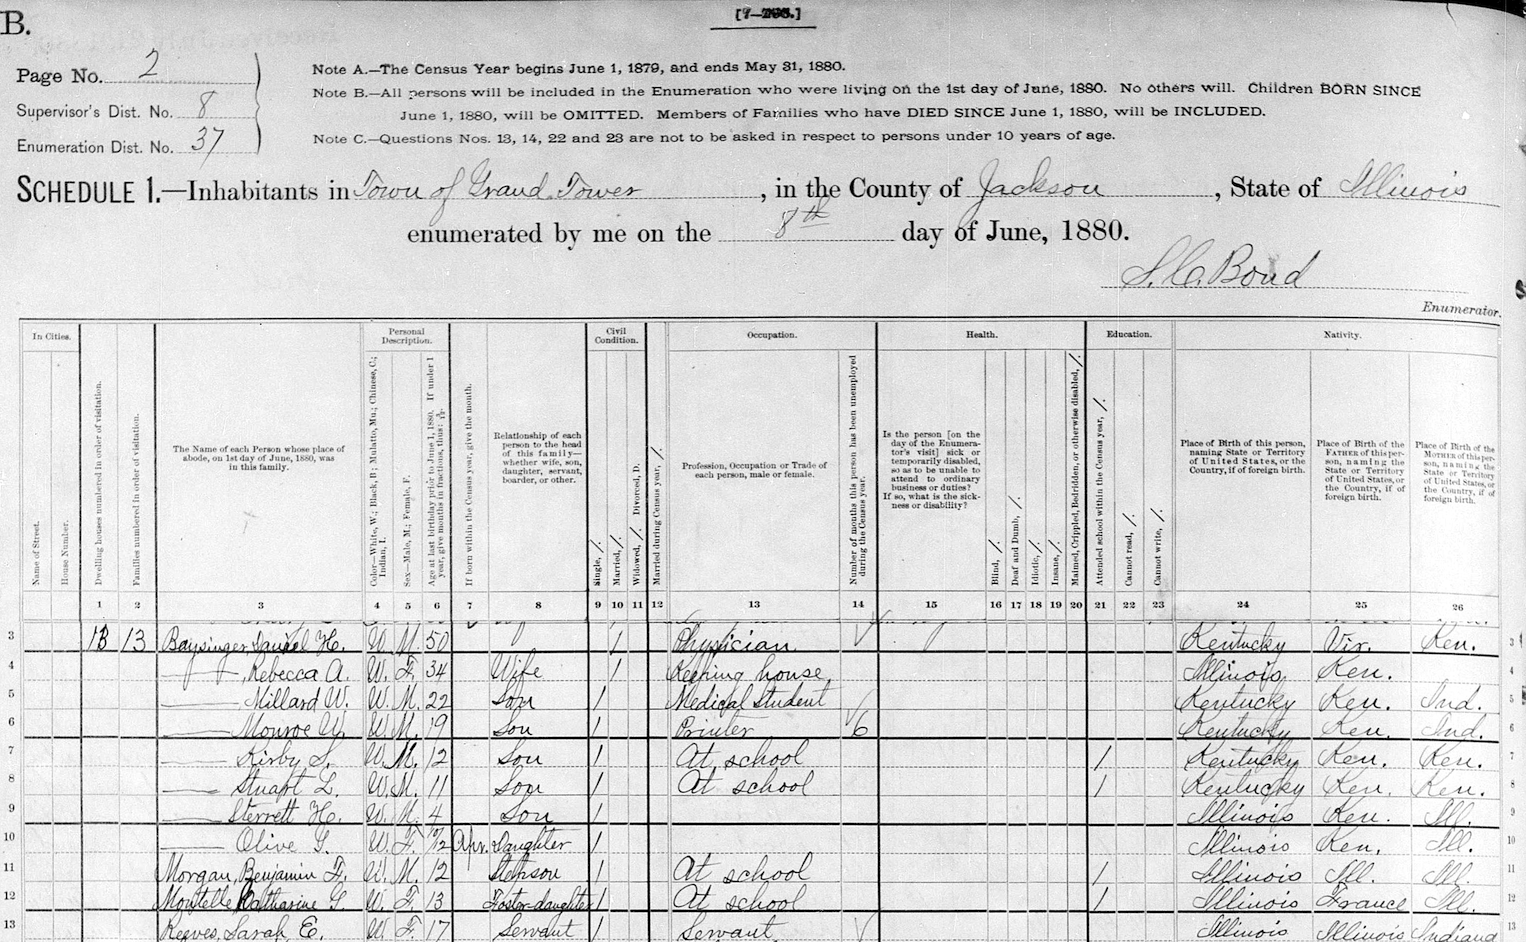 B.
[7—296.]
Page No. 2
Supervisor's Dist. No. 8
Enumeration Dist. No. 37
Note A.—The Census Year begins June 1, 1879, and ends May 31, 1880.
Note B.—All persons will be included in the Enumeration who were living on the 1st day of June, 1880. No others will. Children BORN SINCE
June 1, 1880, will be OMITTED. Members of Families who have DIED SINCE June 1, 1880, will be INCLUDED.
Note C.—Questions Nos. 13, 14, 22 and 23 are not to be asked in respect to persons under 10 years of age.
SCHEDULE 1.—Inhabitants in Town of Grand Tower, in the County of Jackson, State of Illinois
enumerated by me on the 8th day of June, 1880.
S. C. Bond
Enumerator.
In Cities. Personal Description. Civil Condition. Occupation. Health. Education. Nativity.
Name of Street.
House Number.
Dwelling houses numbered in order of visitation.
Families numbered in order of visitation.
The Name of each Person whose place of
abode, on 1st day of June, 1880, was
in this family.
Color—White, W.; Black, B.; Mulatto, Mu.; Chinese, C.;
Indian, I.
Sex—Male, M.; Female, F.
Age at last birthday prior to June 1, 1880. If under 1
year, give months in fractions, thus: 3/12.
If born within the Census year, give the month.
Relationship of each
person to the head
of this family—
whether wife, son,
daughter, servant,
boarder, or other.
Single, /.
Married, /.
Widowed, /. Divorced, D.
Married during Census year, /.
Profession, Occupation or Trade of
each person, male or female.
Number of months this person has been unemployed
during the Census year.
Is the person [on the
day of the Enumera-
tor's visit] sick or
temporarily disabled,
so as to be unable to
attend to ordinary
business or duties?
If so, what is the sick-
ness or disability?
Blind, /.
Deaf and Dumb, /.
Idiotic, /.
Insane, /.
Maimed, Crippled, Bedridden, or otherwise disabled, /.
Attended school within the Census year, /.
Cannot read, /.
Cannot write, /.
Place of Birth of this person,
naming State or Territory
of United States, or the
Country, if of foreign birth.
Place of Birth of the
FATHER of this per-
son, naming the
State or Territory
of United States, or
the Country, if of
foreign birth.
Place of Birth of the
MOTHER of this per-
son, naming the
State or Territory
of United States, or
the Country, if of
foreign birth.
1 2 3 4 5 6 7 8 9 10 11 12 13 14 15 16 17 18 19 20 21 22 23 24 25 26
3 13 13 Baysinger, H. W. M. 50 / Physician Kentucky Vir. Ken. 3
4 —, Rebecca A. W. F. 34 Wife / Keeping house Illinois Ken. 4
5 — Millard W. W. M. 22 Son / Medical Student Kentucky Ken. Ind. 5
6 — Monroe W. W. M. 19 Son / Printer 6 Kentucky Ken. Ind. 6
7 — Kirby S. W. M. 12 Son / At school / Kentucky Ken. Ken. 7
8 — Stuart L. W. M. 11 Son / At school / Kentucky Ken. Ken. 8
9 — Sterrett H. W. M. 4 Son / Illinois Ken. Ill. 9
10 — Olive W. F. Apr. Daughter / Illinois Ken. Ill. 10
11 Morgan, Benjamin F. W. M. 12 Stepson / At school / Illinois Ill. Ill. 11
12 Catharine W. F. 13 Foster-daughter / At school / Illinois France Ill. 12
13 Reeves, Sarah E. W. F. 17 Servant / Servant Illinois Illinois Indiana 13